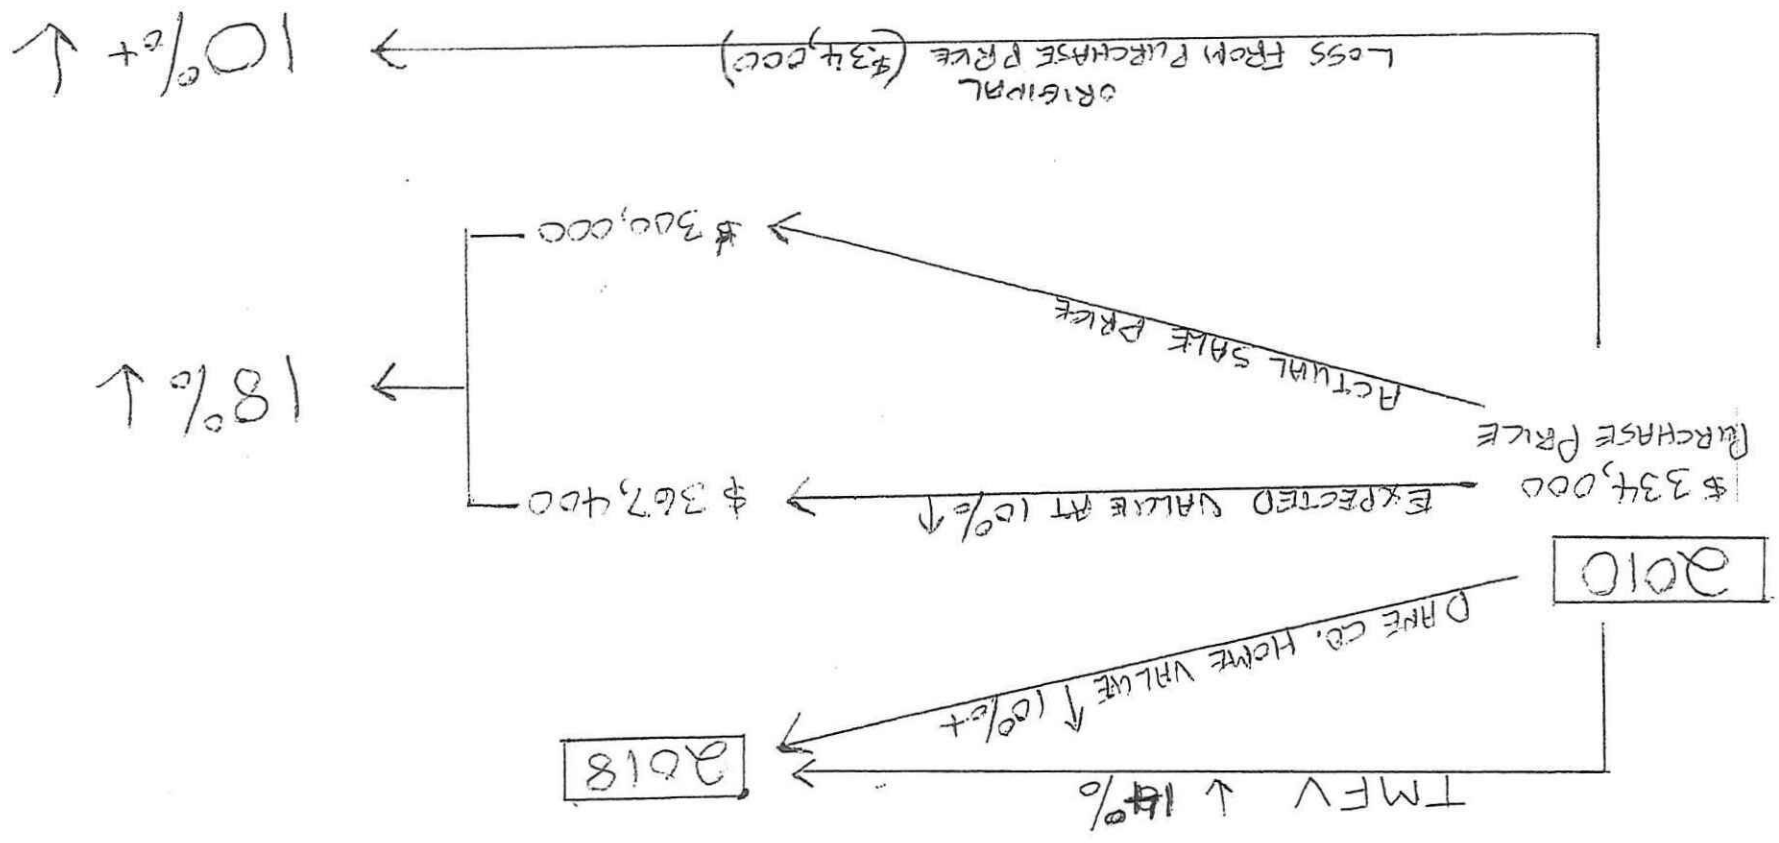 TMFV ↓
2018
DANE CO. HOME VALUE ↑ 10%+
2010
$334,000
PURCHASE PRICE
EXPECTED VALUE AT 10% ↑
$367,400
18% ↓
ACTUAL SALE PRICE
$300,000
ORIGINAL
LOSS FROM PURCHASE PRICE ($34,000)
10%+ ↓